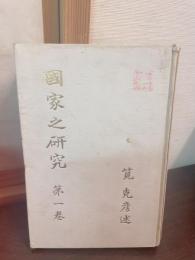 國家之研究 第一巻
筧克彦述